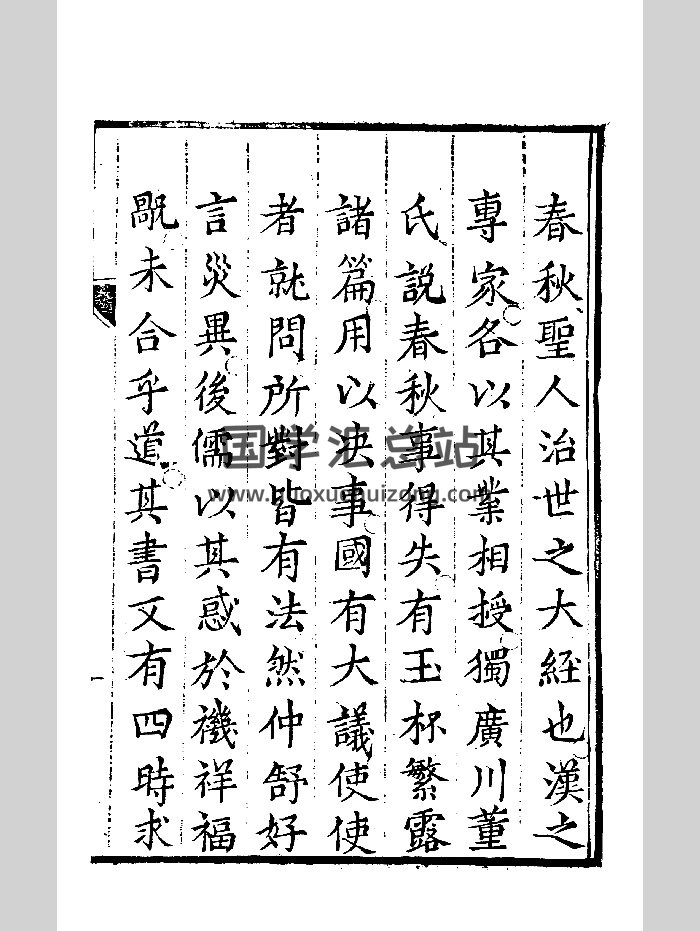 春秋聖人治世之大經也漢之
專家各以其業相授獨廣川董
氏說春秋事得失有玉杯繁露
諸篇用以决事國有大議使使
者就問所對皆有法然仲舒好
言災異後儒以其惑於禨祥福
毆未合乎道其書又有四時求
国学汇总站
www.guoxuehuizong.com